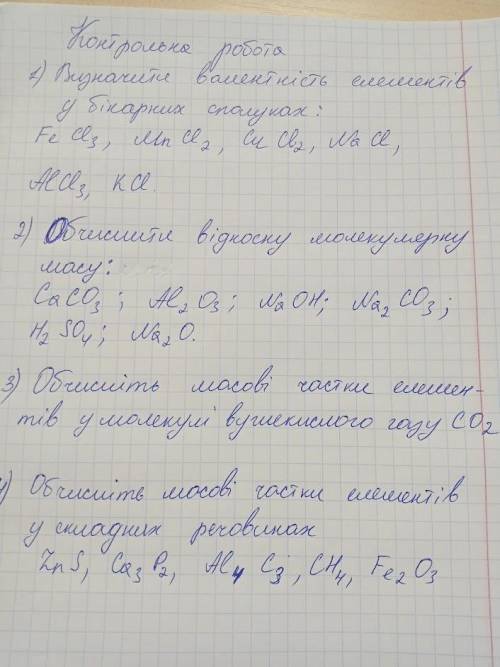 Контрольна робота
1) Визначити валентність елементів
у бінарних сполуках:
FeCl3, MnCl2, CuCl2, NaCl,
AlCl3, KCl.
2) Обчислити відносну молекулярну
масу:
CaCO3; Al2O3; NaOH; Na2CO3;
H2SO4; Na2O.
3) Обчисліть масові частки елемен-
тів у молекулі вуглекислого газу CO2
4) Обчисліть масові частки елементів
у складних речовинах
ZnS, Ca3P2, Al4C3, CH4, Fe2O3